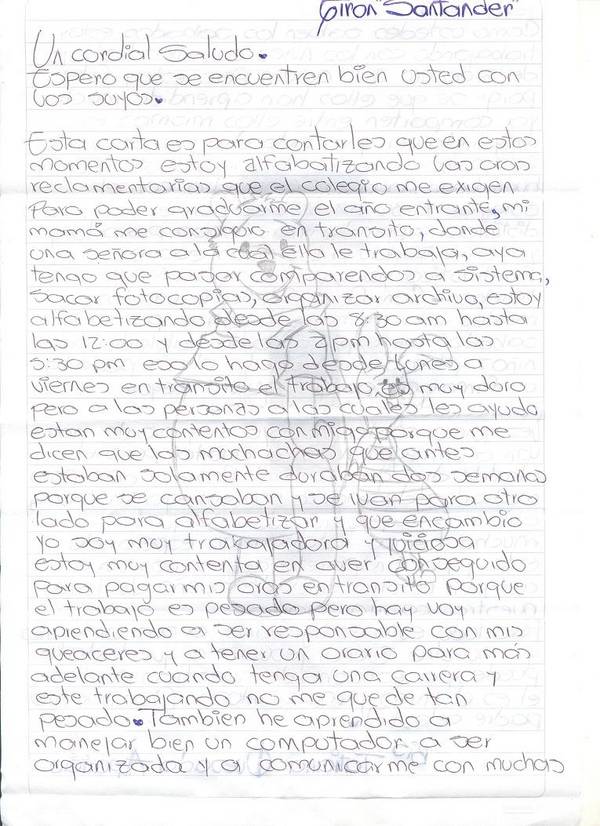 Giron "Santander"
Un cordial Saludo.
Espero que se encuentren bien usted con
los suyos.
Esta carta es para contarles que en estos
momentos estoy alfabatizando las oras
reclamentarias que el colegio me exigen
para poder graduarme el año entrante, mi
mamá me consiguio en transito, donde
una señora a la cual ella le trabaja, aya
tengo que pasar comparendos a sistema,
sacar fotocopias, organizar archivo, estoy
alfabetizando desde las 8:30 am hasta
las 12:00 y desde las 2 pm hasta las
5:30 pm eso lo hago desde lunes a
viernes en transito el trabajo es muy duro
pero a las personas a las cuales les ayudo
estan muy contentos conmigo porque me
dicen que las muchachas que antes
estaban solamente duraban dos semanas
porque se cansaban y se ivan para otro
lado para alfabetizar y que encambio
yo soy muy trabajadora y juiciosa
estoy muy contenta en aver conseguido
para pagar mis oras en transito porque
el trabajo es pesado pero hay voy
aprendiendo a ser responsable con mis
queaceres y a tener un orario para más
adelante cuando tenga una carrera y
este trabajando no me quede tan
pesado. Tambien he aprendido a
manejar bien un computador a ser
organizada y a comunicarme con muchas